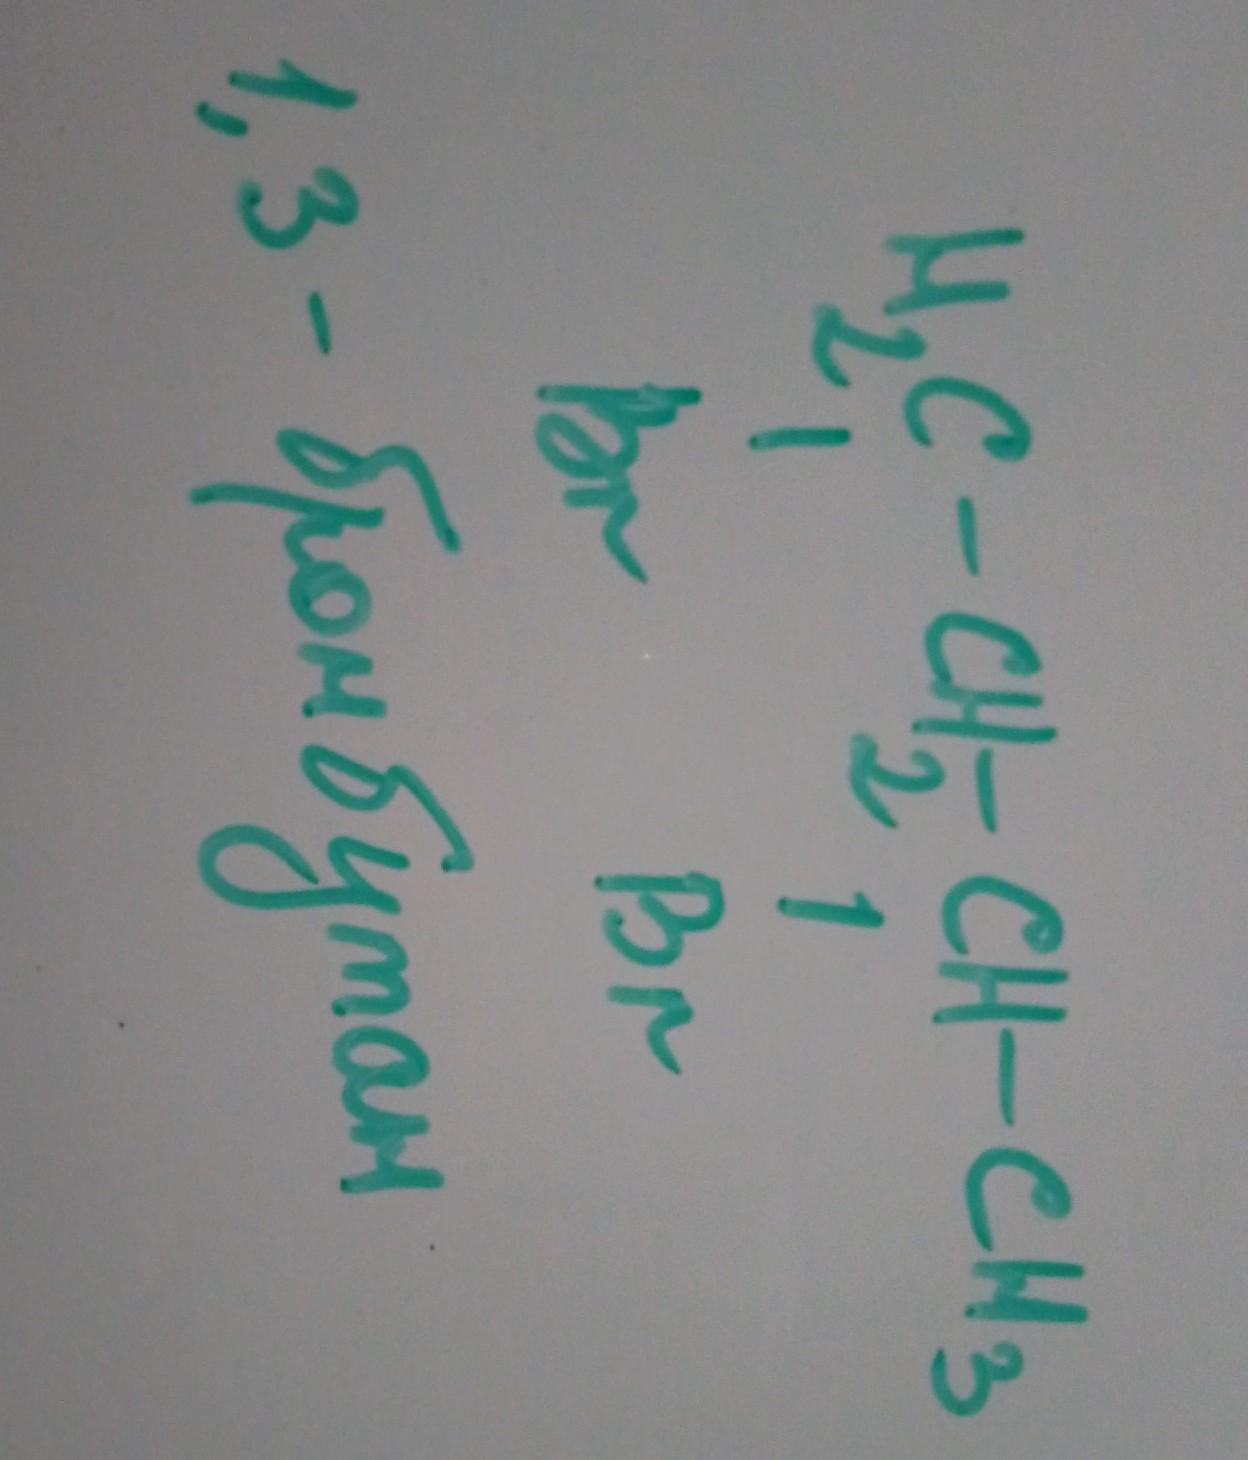 H2C-CH2-CH-CH3
| |
Br Br
1,3-бромбутан